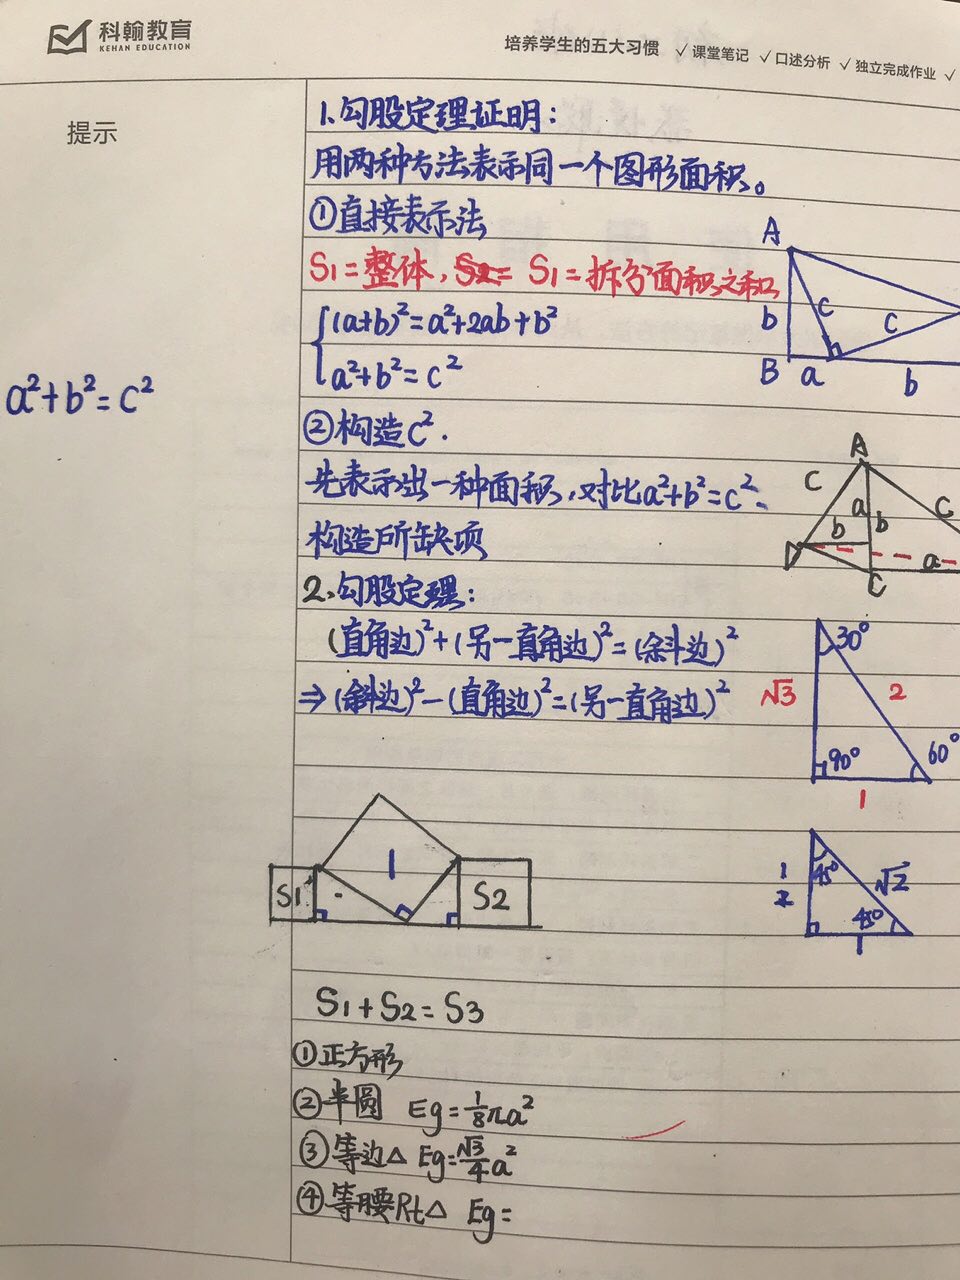 科翰教育
KEHAN EDUCATION
培养学生的五大习惯 ✓课堂笔记 ✓口述分析 ✓独立完成作业 ✓
提示
1.勾股定理证明:
用两种方法表示同一个图形面积。
①直接表示法
S1=整体, S1=拆分面积之和
(a+b)²=a²+2ab+b²
a²+b²=c²
A
b
c
c
B
a
b
a²+b²=c²
②构造C².
先表示出一种面积,对比a²+b²=c²、
构造所缺项
A
C
a
b
b
C
a
C
2.勾股定理:
(直角边)²+(另一直角边)²=(斜边)²
⇒(斜边)²-(直角边)²=(另一直角边)²
30°
√3
2
90°
60°
1
S1
1
S2
1
45°
√2
45°
1
S1+S2=S3
①正方形
②半圆 Eg=1/8πa²
③等边△ Eg=√3/4a²
④等腰Rt△ Eg=